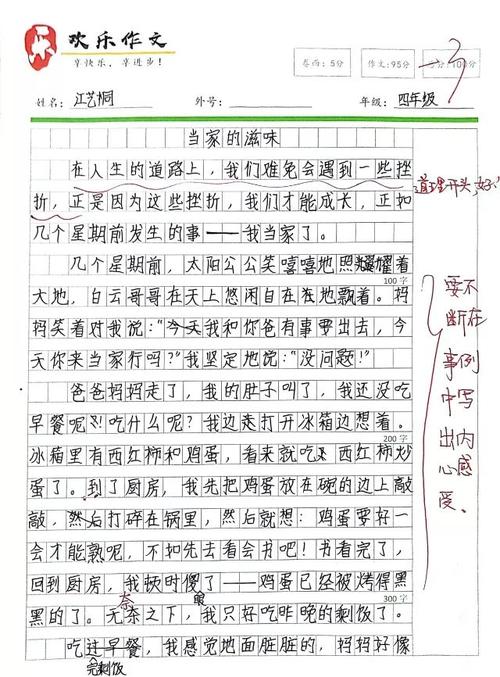 欢乐作文
享快乐，享进步！
卷面：5分
作文：95分
姓名：江艺桐
外号：
年级：四年级
当家的滋味
在人生的道路上，我们难免会遇到一些挫
折，正是因为这些挫折，我们才能成长，正如
几个星期前发生的事——我当家了。
道理开头，好！
几个星期前，太阳公公笑嘻嘻地照耀着
100字
大地，白云哥哥在天上悠闲自在地飘着。妈
妈笑着对我说：“今天我和你爸有事要出去，今
天你来当家行吗？”我坚定地说：“没问题！”
爸爸妈妈走了，我的肚子叫了，我还没吃
早餐呢！吃什么呢？我边走打开冰箱边想着。
200字
冰箱里有西红柿和鸡蛋，看来就吃西红柿炒
蛋了。到了厨房，我先把鸡蛋放在碗的边上敲
敲，然后打碎在锅里，然后就想：鸡蛋要好一
会才能熟呢，不如先去看会书吧！书看完了，
回到厨房，我顿时傻了——鸡蛋已经被烤得黑
黑的了。无奈之下，我只好吃昨晚的剩饭了。
300字
奈
吃过早餐，我感觉地面脏脏的，妈妈好像
完剩饭
要不断在事例中写出内心感受。